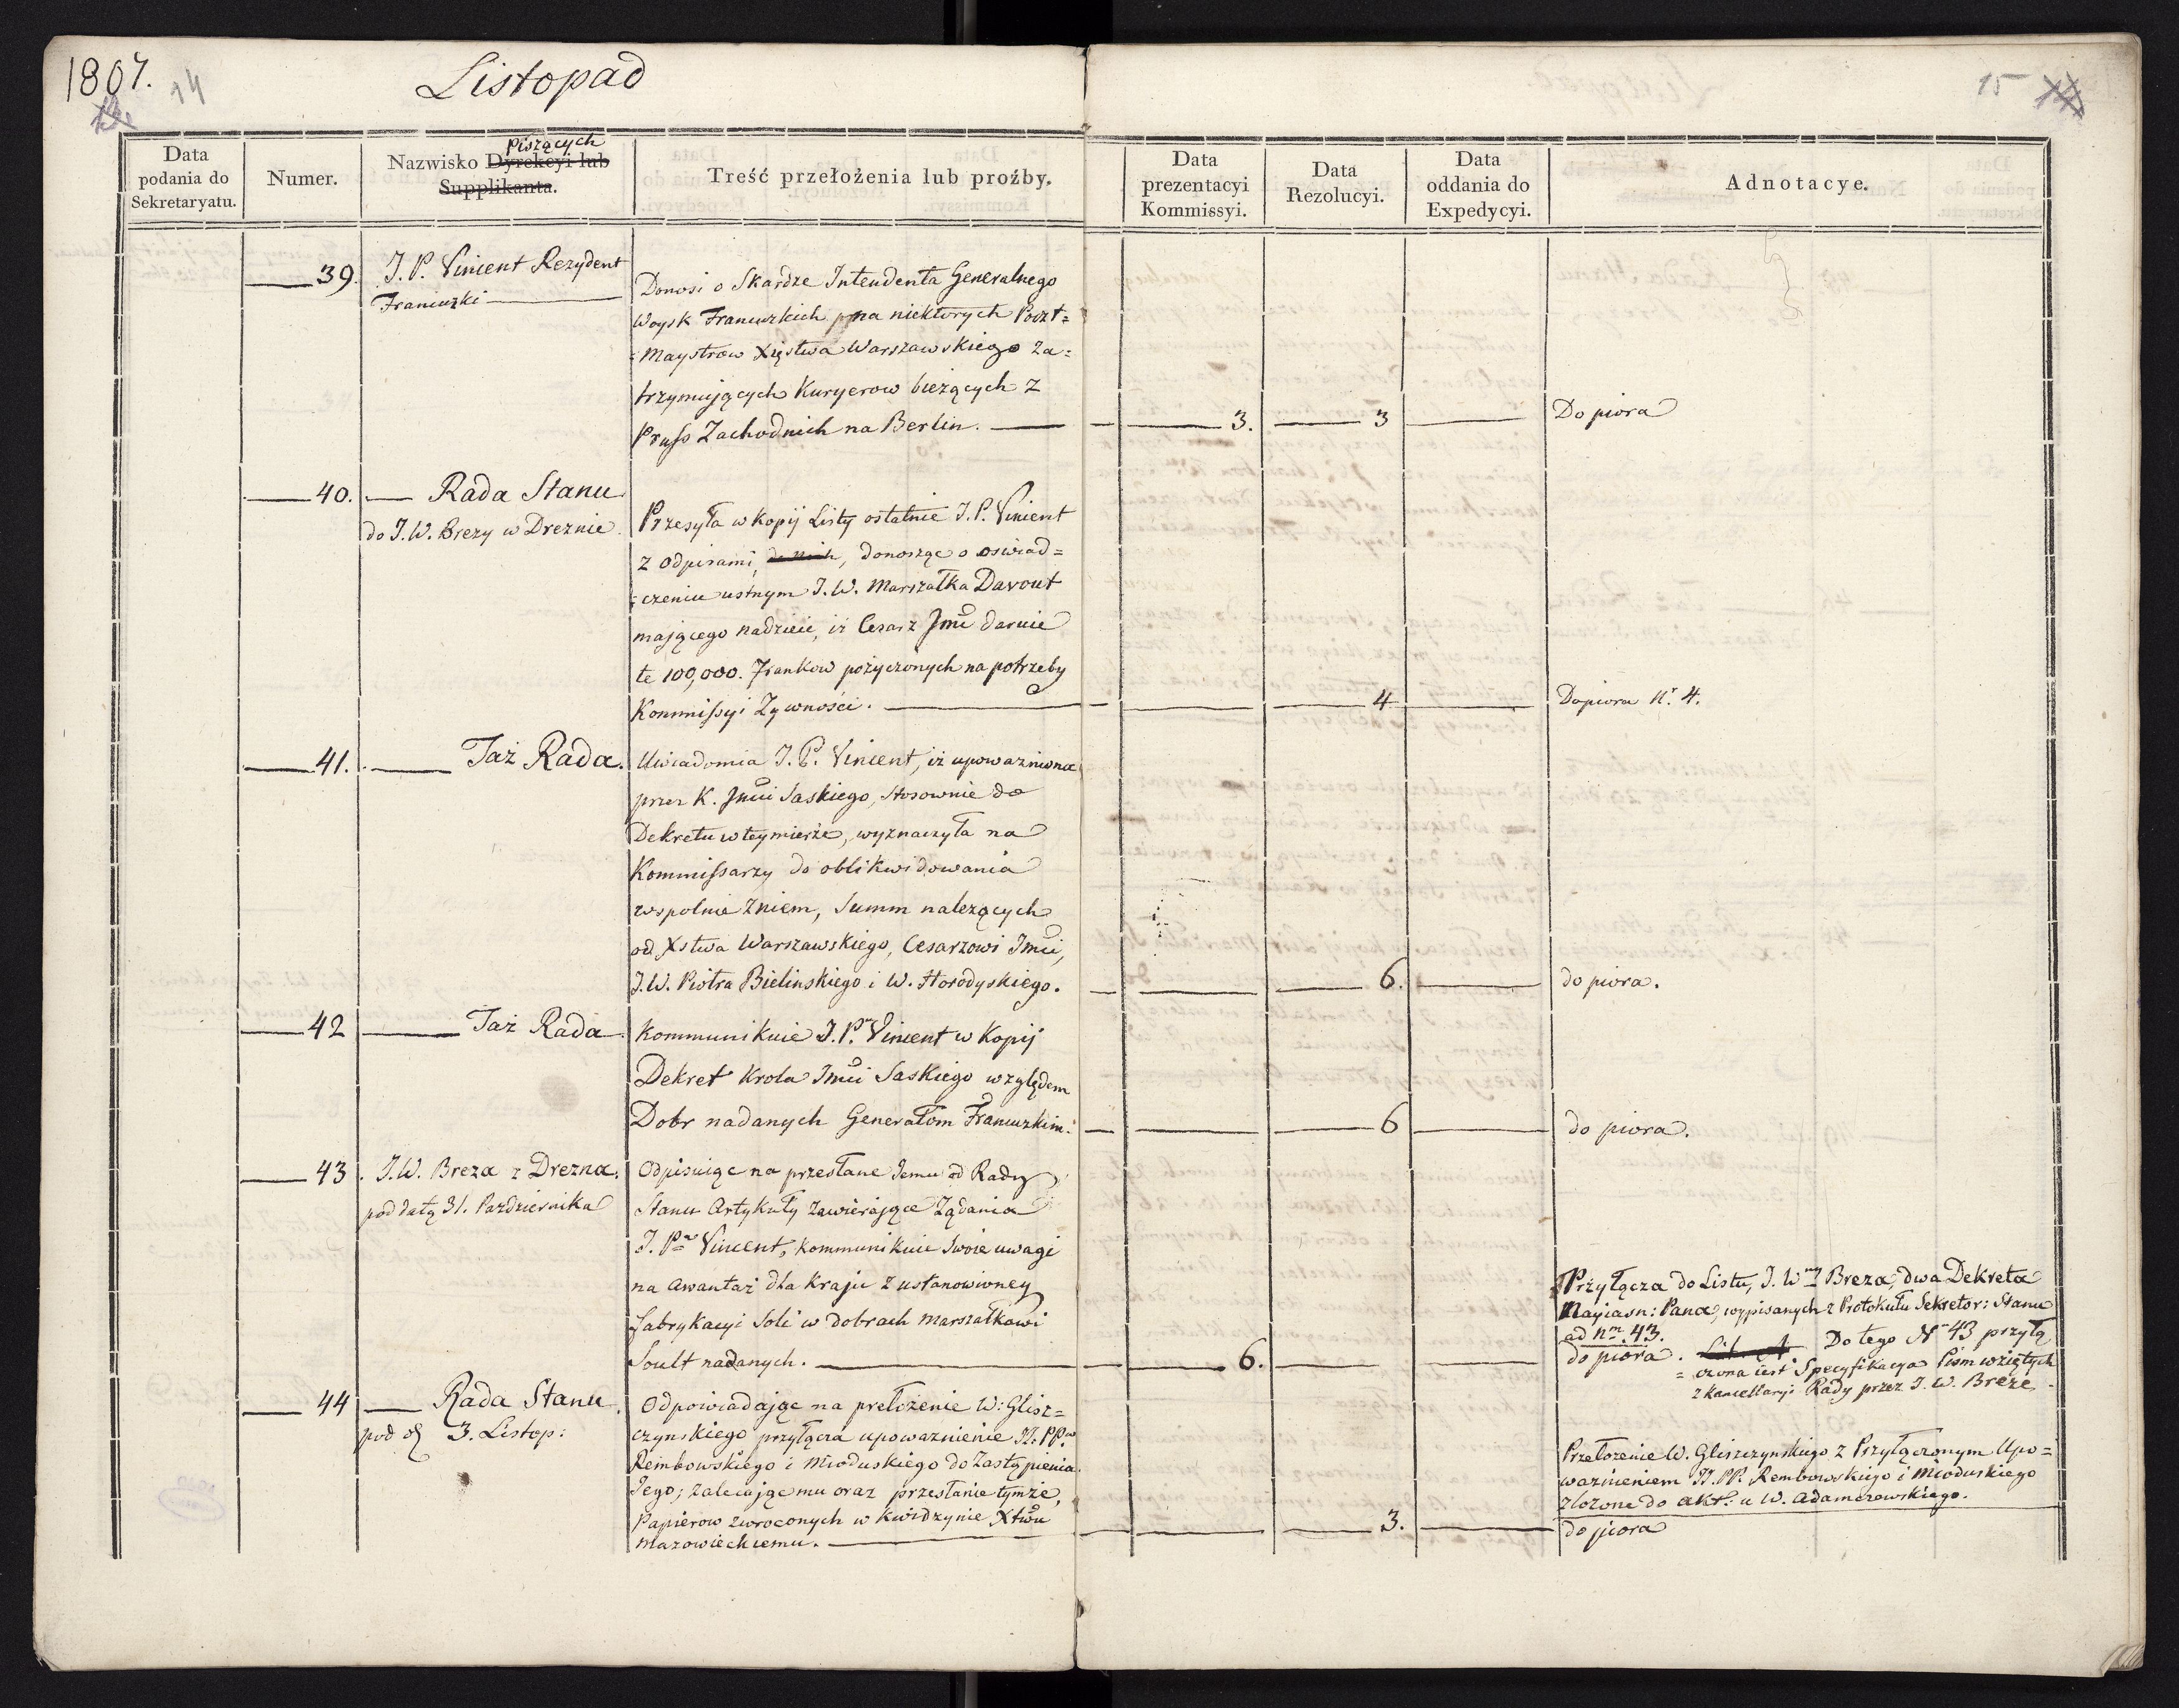 1807.
14
Listopad
15
Data
podania do
Sekretaryatu.
Numer.
Piszących
Nazwisko Dyrekcyi lub
Supplikanta.
Treść przełożenia lub proźby.
Data
prezentacyi
Kommissyi.
Data
Rezolucyi.
Data
oddania do
Expedycyi.
Adnotacye.
39.
J. P. Vincent Rezydent
Francuzki
Donosi o Skardze Intendenta Generalnego
Woysk Francuzkich na niektorych Poczt=
=Maystrow Xięstwa Warszawskiego za=
trzymuiących Kuryerow bieżących z
Pruss Zachodnich na Berlin.
3.
3
Do piora
40.
Rada Stanu
do J. W. Brezy w Dreznie.
Przesyła w Kopij Listy ostatnie J. P. Vincent
z odpisami do nich, donosząc o oswiad=
=czeniu ustnym J. W. Marszałka Davout
maiącego nadzieię, iż Cesarz Jmć daruie
te 100,000. Frankow pożyczonych na potrzeby
Kommissyi Żywności.
4
Do piora Nr. 4.
41.
Taż Rada.
Uwiadomia J. P. Vincent, iż upoważniona
przez K. Jmci Saskiego, stosownie do
Dekretu w teymierże, wyznaczyła na
Kommissarzy do oblikwidowania
wspolnie z niem, Summ należących
od Xstwa Warszawskiego, Cesarzowi Jmci,
J. W. Piotra Bielinskiego i W. Horodyskiego.
6.
do piora.
42
Taż Rada.
Kommunikuie J. P. Vincent w Kopij
Dekret Krola Jmci Saskiego względem
Dobr nadanych Generałom Francuzkim.
6
do piora.
43.
J. W. Breza z Drezna.
pod datą 31. Pazdziernika
Odpisuiąc na przesłane Jemu od Rady
Stanu Artykuły zawieraiące Żądania
J. Pna Vincent, kommunikuie Swoie uwagi
na awantaż dla Kraju z ustanowioney
fabrykacyi Soli w dobrach Marszałkowi
Soult nadanych.
6.
Przyłącza do Listu, J. Wny Breza, dwa Dekreta
Nayiasn: Pana, wypisanych z Protokułu Sekretar: Stanu
ad Nm 43.
do piora. Lit. A. Do tego N 43 przyłą
=czona iest Specyfikacya Pism wziętych
z Kancellaryi Rady przez J. W. Brezę.
44
Rada Stanu.
pod d. 3. Listop:
Odpowiadaiąc na przełożenie W: Glisz=
czynskiego przyłącza upoważnienie JJ. PPw
Rembowskiego i Mioduskiego do Zastąpienia
Jego; zalecaiąc mu oraz przesłanie tymże,
Papierow zwroconych w Kwidzynie Xtwu
Mazowieckiemu.
3.
Przełożenie W. Gliszczynskiego z Przyłączonym Upo=
ważnieniem JJ. PP. Rembowskiego i Mioduskiego
złożone do akt: u W. Adamczewskiego.
do piora